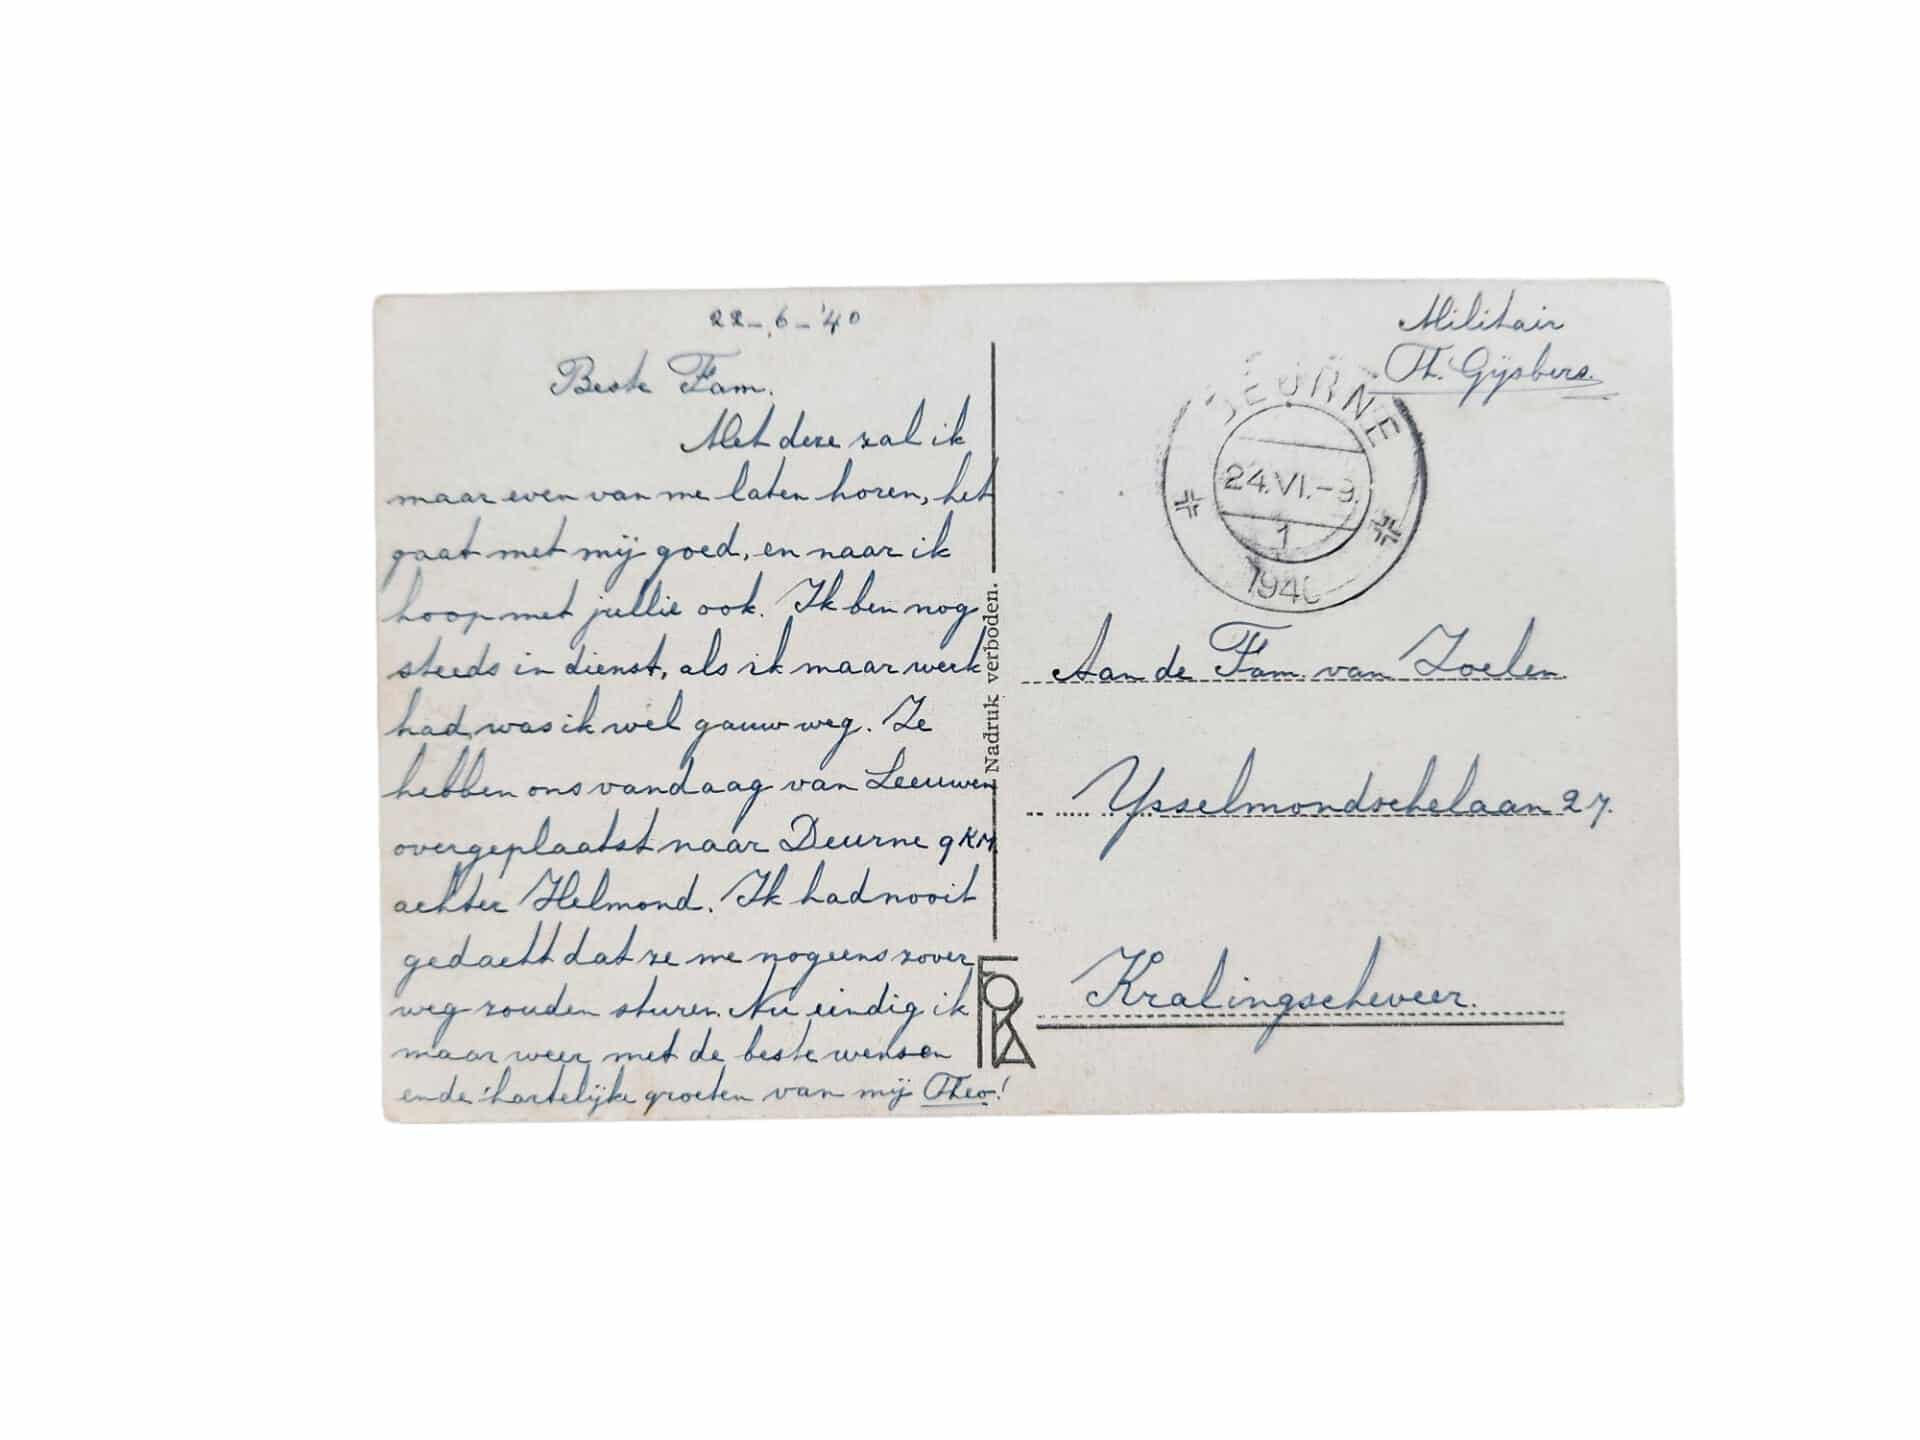 22-6-'40
Beste Fam.
Met deze zal ik
maar even van me laten horen, het
gaat met mij goed, en naar ik
hoop met jullie ook. Ik ben nog
steeds in dienst, als ik maar werk
had, was ik wel gauw weg. Ze
hebben ons vandaag van Leeuwen
overgeplaatst naar Deurne 9 KM
achter Helmond. Ik had nooit
gedacht dat ze me nog eens zover
weg zouden sturen. Nu eindig ik
maar weer met de beste wensen
en de hartelijke groeten van mij Theo!
Nadruk verboden.
FOKA
Militair
Th. Gijsbers.
DEURNE
24.VI.-9.
1
1940
Aan de Fam. van Zoelen
Ysselmondschelaan 27.
Kralingscheveer.